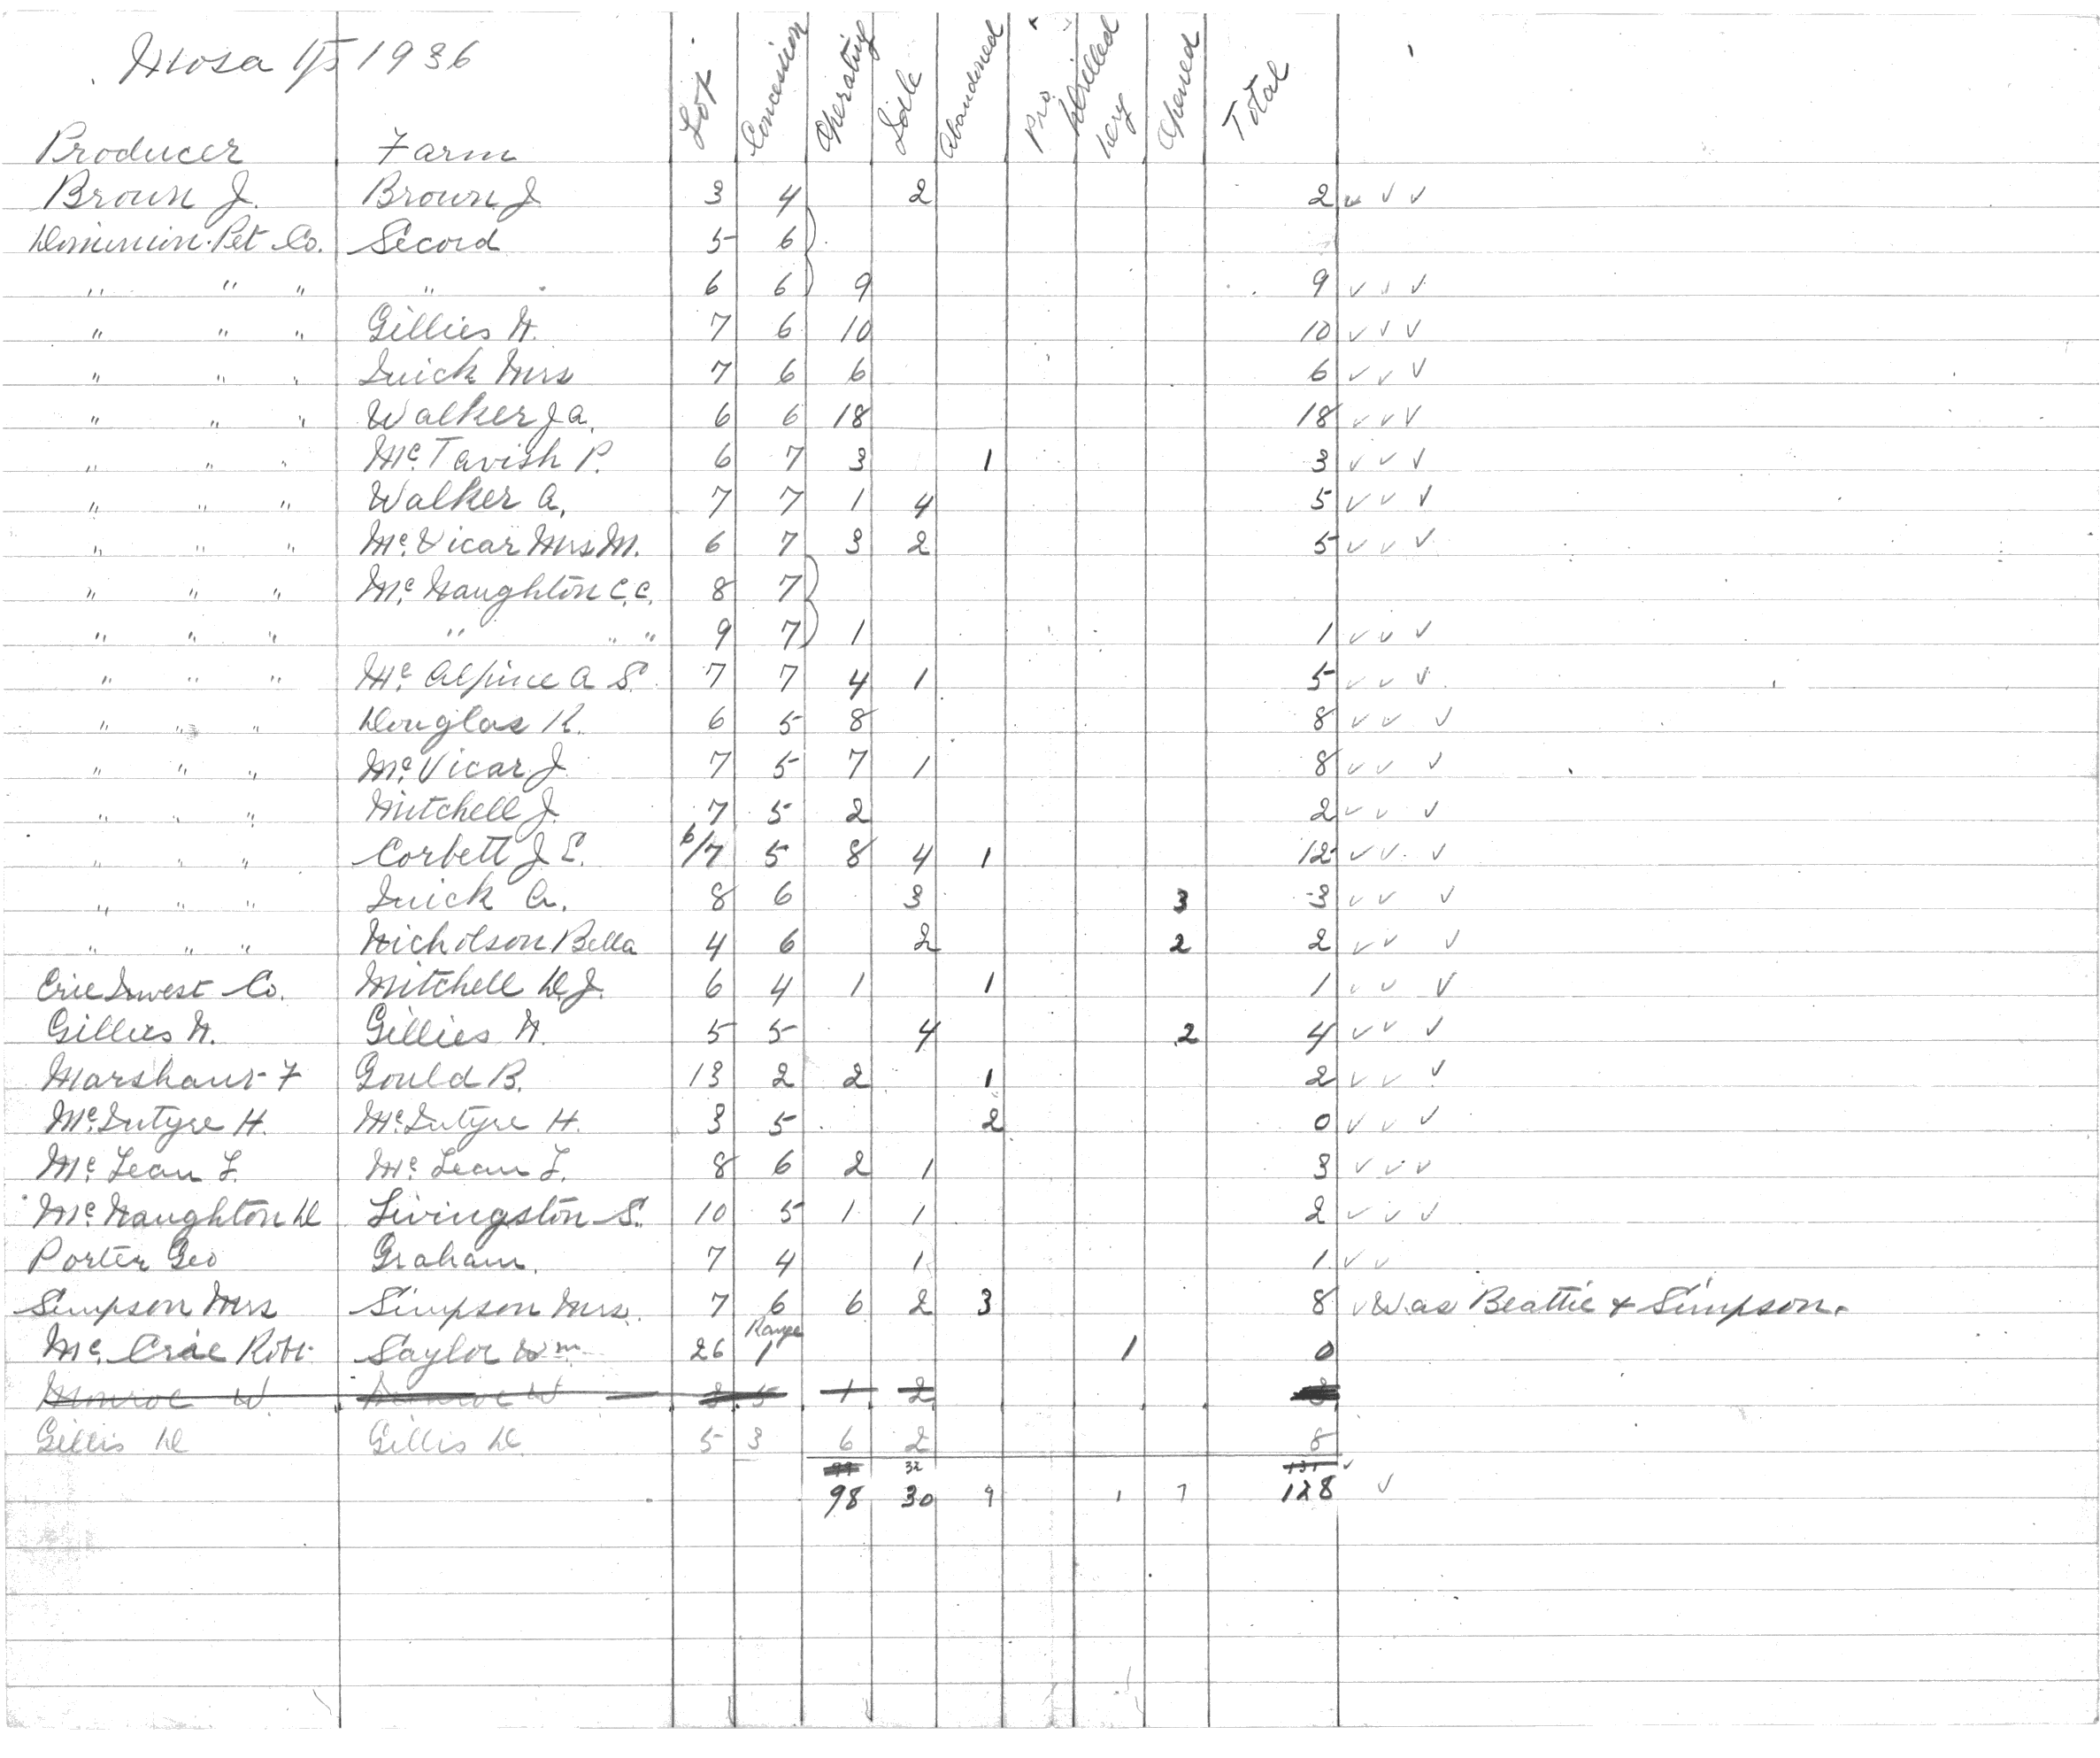 Mosa Tp 1936
Producer Farm Lot Concession Operating Idle Abandoned Pro Drilled Dry Opened Total
Brown J. Brown J 3 4 2 2 ✓ ✓ ✓
Dominion Pet Co. Secord 5 6
" " " " 6 6 9 9 ✓ ✓ ✓
" " " Gillies N. 7 6 10 10 ✓ ✓ ✓
" " " Quick Mrs 7 6 6 6 ✓ ✓ ✓
" " " Walker J a. 6 6 18 18 ✓ ✓ ✓
" " " Mc Tavish P. 6 7 3 1 3 ✓ ✓ ✓
" " " Walker A. 7 7 1 4 5 ✓ ✓ ✓
" " " Mc Vicar Mrs M. 6 7 3 2 5 ✓ ✓ ✓
" " " Mc Naughton C.C. 8 7
" " " " " " 9 7 1 1 ✓ ✓ ✓
" " " Mc Alpine A S. 7 7 4 1 5 ✓ ✓ ✓
" " " Douglas R. 6 5 8 8 ✓ ✓ ✓
" " " Mc Vicar J 7 5 7 1 8 ✓ ✓ ✓
" " " Mitchell J. 7 5 2 2 ✓ ✓ ✓
" " " Corbett J E. 6/7 5 8 4 1 12 ✓ ✓ ✓
" " " Quick A. 8 6 3 3 3 ✓ ✓ ✓
" " " Nicholson Bella 4 6 2 2 2 ✓ ✓ ✓
Erie Invest Co. Mitchell D.J. 6 4 1 1 1 ✓ ✓ ✓
Gillies N. Gillies N. 5 5 4 2 4 ✓ ✓ ✓
F Gould B. 13 2 2 1 2 ✓ ✓ ✓
Mc Intyre H. Mc Intyre H. 3 5 2 0 ✓ ✓ ✓
Mc Lean F. Mc Lean F. 8 6 2 1 3 ✓ ✓ ✓
Mc Naughton D Livingston S. 10 5 1 1 2 ✓ ✓ ✓
Porter Geo Graham. 7 4 1 1 ✓ ✓
Simpson Mrs Simpson Mrs. 7 6 6 2 3 8 ✓ Was Beattie & Simpson.
Mc Crae Robt. Saylor Wm 26 Range 1 1 0
Monroe W. Monroe W 3 5 1 2 3
Gillis D Gillis D. 5 3 6 2 8
99 32 131 ✓
98 30 9 1 7 128 ✓